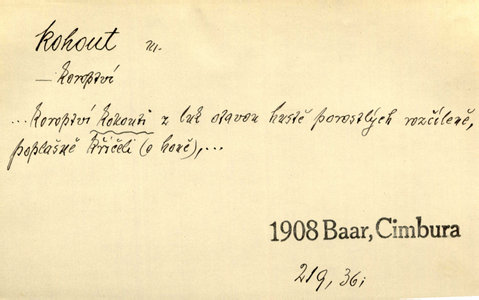 kohout m.
– koroptví
...koroptví kohouti z luk otavou hustě porostlých rozčíleně,
poplašně křičeli (o honě),...
1908 Baar, Cimbura
219, 36;